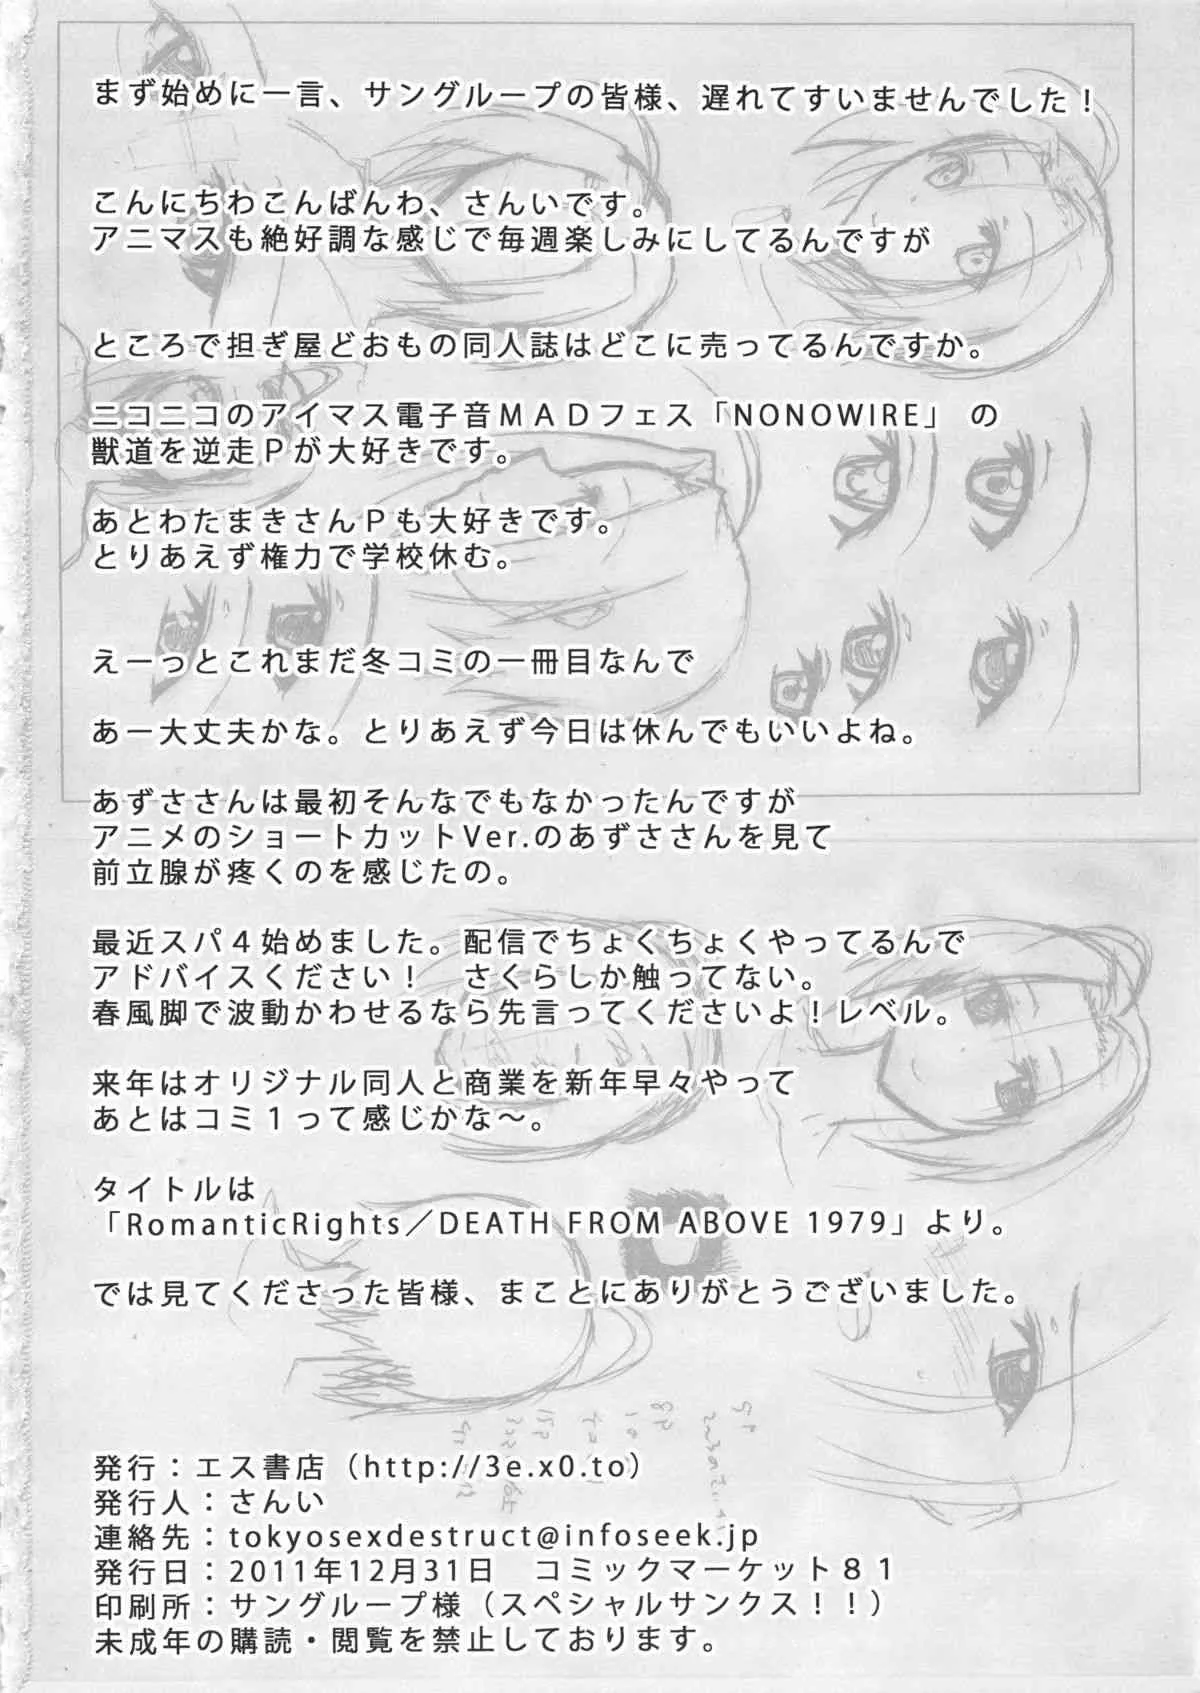 まず始めに一言、サングループの皆様、遅れてすいませんでした！
こんにちわこんばんわ、さんいです。
アニマスも絶好調な感じで毎週楽しみにしてるんですが
ところで担ぎ屋どおもの同人誌はどこに売ってるんですか。
ニコニコのアイマス電子音ＭＡＤフェス「NONOWIRE」 の
獣道を逆走Ｐが大好きです。
あとわたまきさんＰも大好きです。
とりあえず権力で学校休む。
えーっとこれまだ冬コミの一冊目なんで
あー大丈夫かな。とりあえず今日は休んでもいいよね。
あずささんは最初そんなでもなかったんですが
アニメのショートカットVer.のあずささんを見て
前立腺が疼くのを感じたの。
最近スパ４始めました。配信でちょくちょくやってるんで
アドバイスください！　さくらしか触ってない。
春風脚で波動かわせるなら先言ってくださいよ！レベル。
来年はオリジナル同人と商業を新年早々やって
あとはコミ１って感じかな～。
タイトルは
「RomanticRights／DEATH FROM ABOVE 1979」より。
では見てくださった皆様、まことにありがとうございました。
発行：エス書店（http://3e.x0.to）
発行人：さんい
連絡先：tokyosexdestruct@infoseek.jp
発行日：2011年12月31日　コミックマーケット８１
印刷所：サングループ様（スペシャルサンクス！！）
未成年の購読・閲覧を禁止しております。